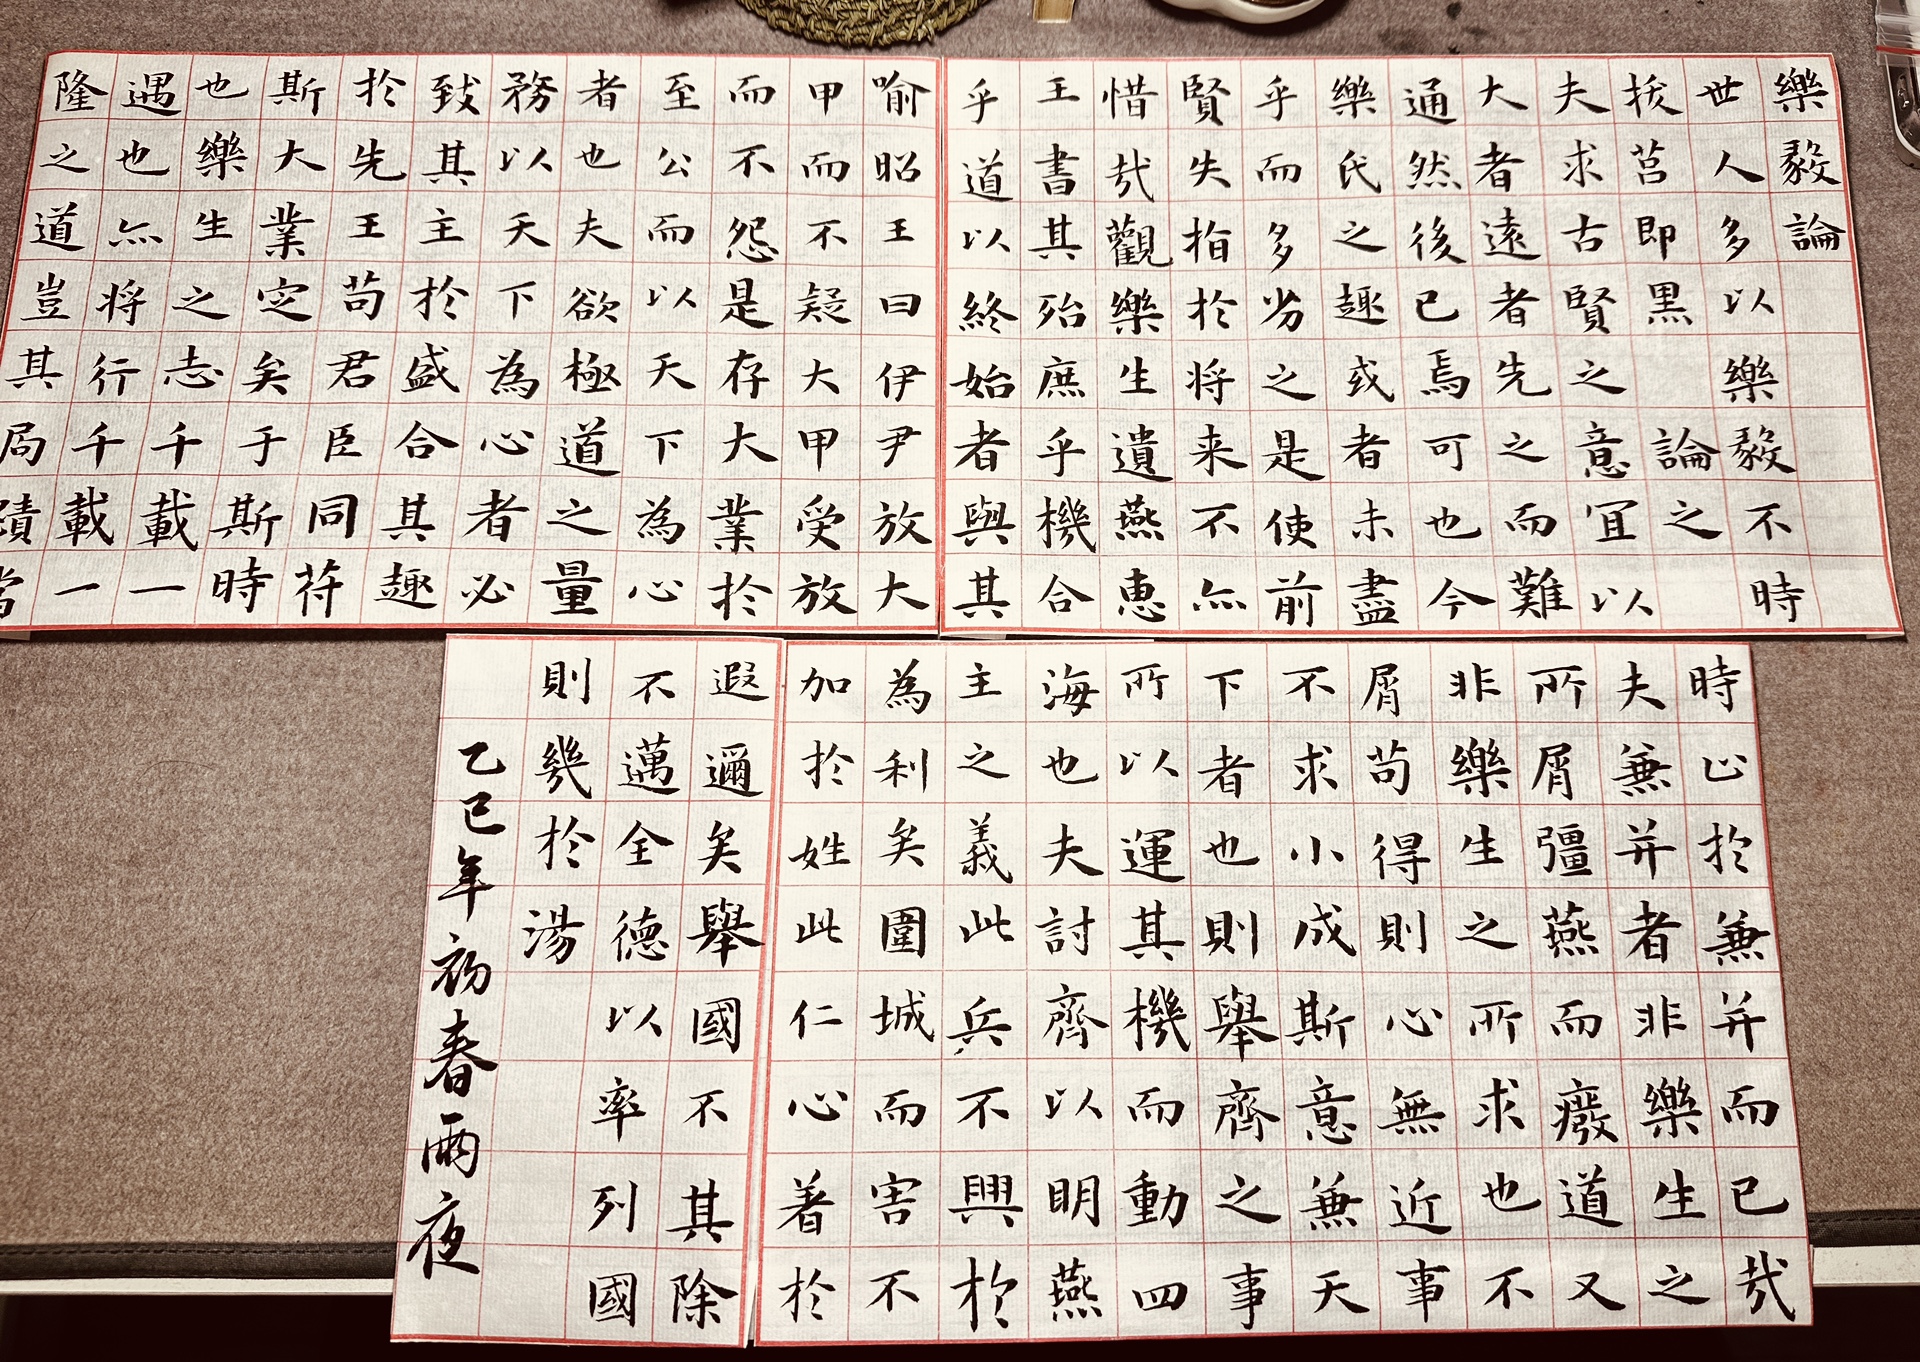 樂毅論
世人多以樂毅不時
拔莒即黑 論之
夫求古賢之意宜以
大者遠者先之而難
通然後已焉可也今
樂氏之趣或者未盡
乎而多劣之是使前
賢失指於将来不亦
惜哉觀樂生遺燕惠
王書其殆庶乎機合
乎道以終始者與其
喻昭王曰伊尹放大
甲而不疑大甲受放
而不怨是存大業於
至公而以天下為心
者也夫欲極道之量
務以天下為心者必
致其主於盛合其趣
於先王苟君臣同苻
斯大業定矣于斯時
也樂生之志千載一
遇也亦将行千載一
隆之道豈其局蹟當
時止於兼并而已哉
夫兼并者非樂生之
所屑彊燕而廢道又
非樂生之所求也不
屑苟得則心無近事
不求小成斯意兼天
下者也則舉齊之事
所以運其機而動四
海也夫討齊以明燕
主之義此兵不興於
為利矣圍城而害不
加於姓此仁心著於
遐邇矣舉國不其除
不邁全德以率列國
則幾於湯
乙巳年初春雨夜